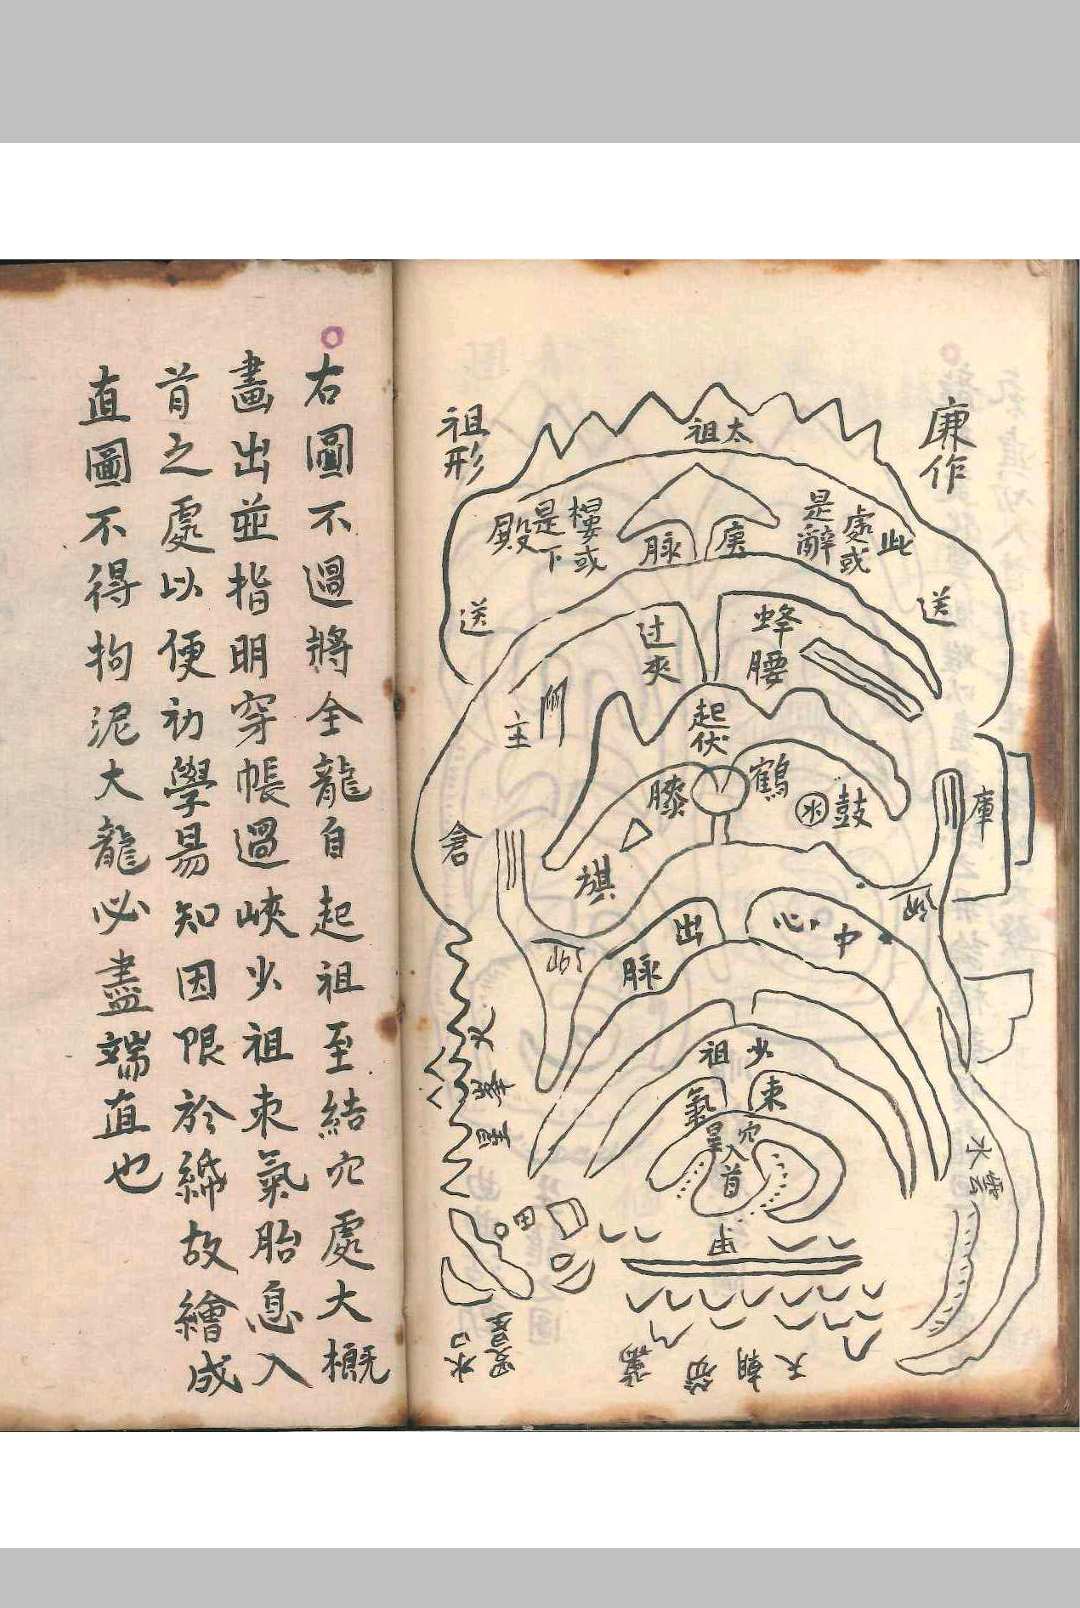 廉作
祖形
太祖
此處或是辭
樓或是下殿
庚脉
送
送
蜂腰
过夾
主
起伏
鶴膝
鼓
水
旗
庫
倉
中心出脉
少祖
束氣
穴入
首
田
水口
天朝
右圖不過將全龍自起祖至結穴處大概
畫出並指明穿帳過峽少祖束氣胎息入
首之處以便初學易知因限於綿故繪成
直圖不得拘泥大龍必盡端直也